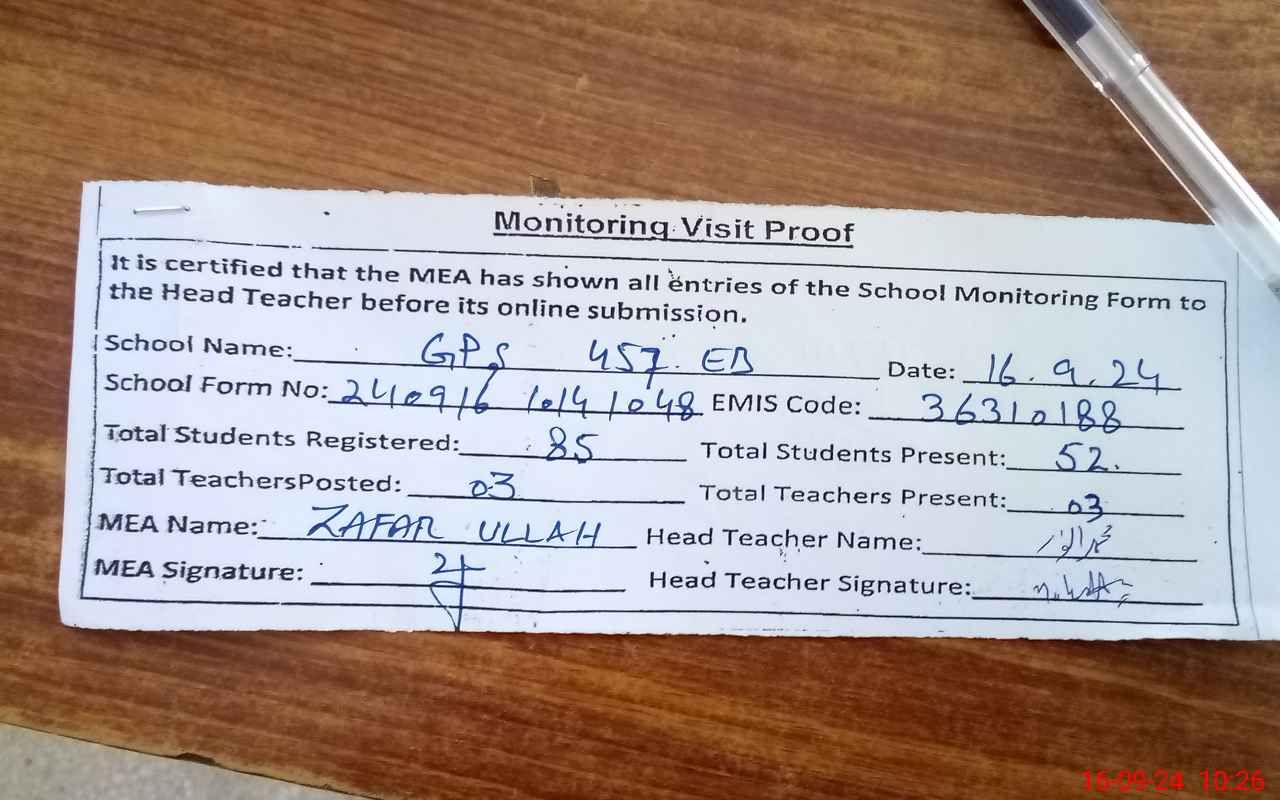 Monitoring Visit Proof
It is certified that the MEA has shown all entries of the School Monitoring Form to
the Head Teacher before its online submission.
School Name: GPS 457. EB Date: 16.9.24
School Form No: 240916 10141048 EMIS Code: 36310188
Total Students Registered: 85 Total Students Present: 52.
Total TeachersPosted: 03 Total Teachers Present: 03
MEA Name: ZAFAR ULLAH Head Teacher Name:
MEA Signature: Head Teacher Signature:
16-09-24 10:26